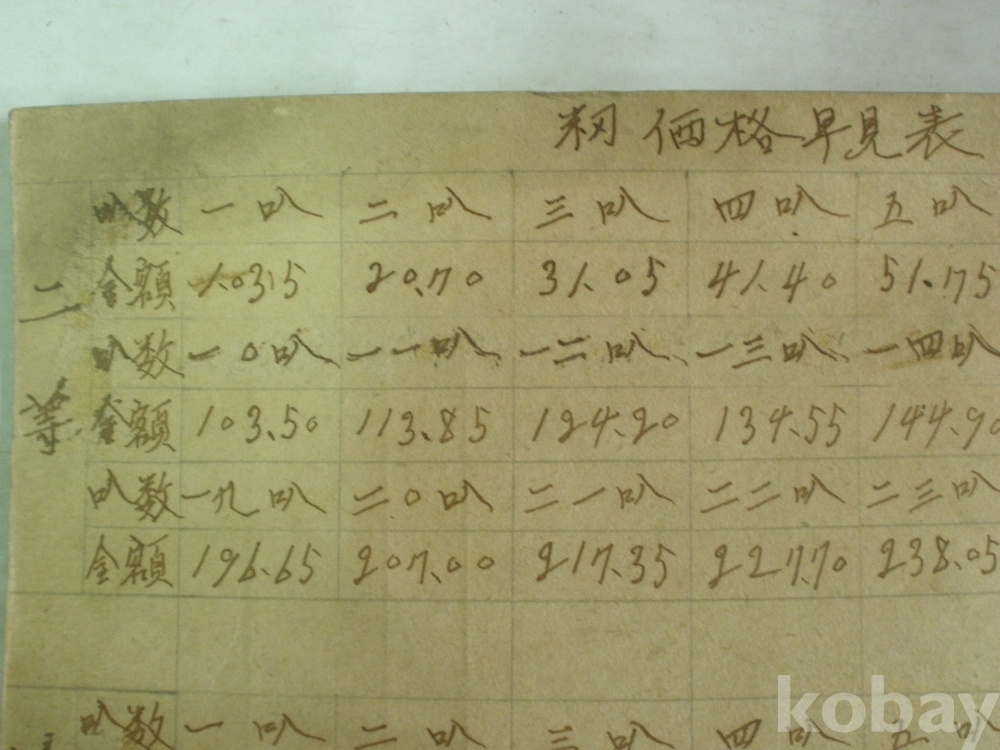 籾価格早見表
二等
叺数 一叺 二叺 三叺 四叺 五叺
金額 10.35 20.70 31.05 41.40 51.75
叺数 一〇叺 一一叺 一二叺 一三叺 一四叺
金額 103.50 113.85 124.20 134.55 144.90
叺数 一九叺 二〇叺 二一叺 二二叺 二三叺
金額 196.65 207.00 217.35 227.70 238.05
叺数 一叺 二叺 三叺 四叺 五叺
kobay